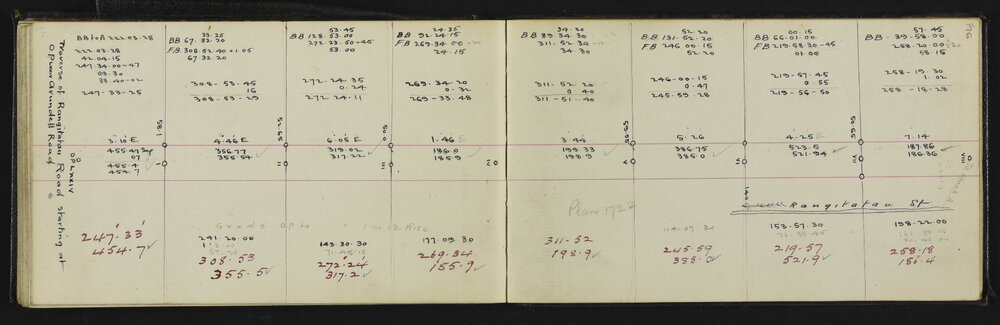 Traverse of Rangitatau Road starting at
O Peg Arundell Road
OP LXXIV
BB to A 222.03.28
222.03.28
42.04.15
247.34.00-47
03.30
33.40-02
247-33-25
3.10 E
455.47
07
455.4
454.7
247.33
454.7
58.1
33.25
BB 67.32.20
FB 308.52.40 +1.05
67 32.20
308-53-45
16
308-53-29
4.46 E
356.77
355.54
241.20.00
308.53
355.5
52.65
53.45
BB 128.53.00
272.23.50+45
53.00
272-24-35
0-24
272-24-11
6.05 E
319.02
317.22
149.30.30
272.24
317.2
50.0
24.35
BB 92.24.15
FB 269.34.00
24.15
269-34-20
0-32
269-33-48
1.46 E
186.0
185.9
Grade up to 1 in 12 Rise
177.09.30
269.34
185.9
34.20
BB 89.34.30
311.52.30
34.30
311-52-20
0 40
311-51-40
3.44
199.33
198.9
Plan 1722
311.52
198.9
55.65
52.20
BB 131.52.20
FB 246.00.15
52.20
246-00-15
0-47
245-59-28
5.26
386.75
385.0
114.07.20
245.59
385.0
00.15
BB 66.01.00
FB 219.58.30-45
01.00
219-57-45
0-55
219-56-50
4.25 E
523.5
521.94
140
Rangitatau St
153.57.30
219.57
521.9
55.65
76
57.45
BB 39.58.00
258.20.00
58.15
258-19.30
1.02
258-18-28
7.14
187.86
186.36
198.22.00
258.18
186.4